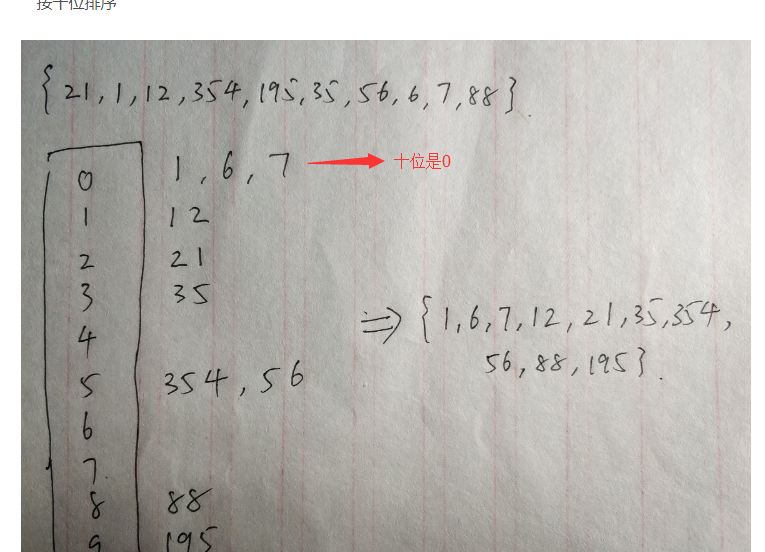 按十位排序
{21,1,12,354,195,35,56,6,7,88}.
0 1,6,7 十位是0
1 12
2 21
3 35
4
5 354,56
6
7
8 88
9 195
⇒{1,6,7,12,21,35,354,
56,88,195}.